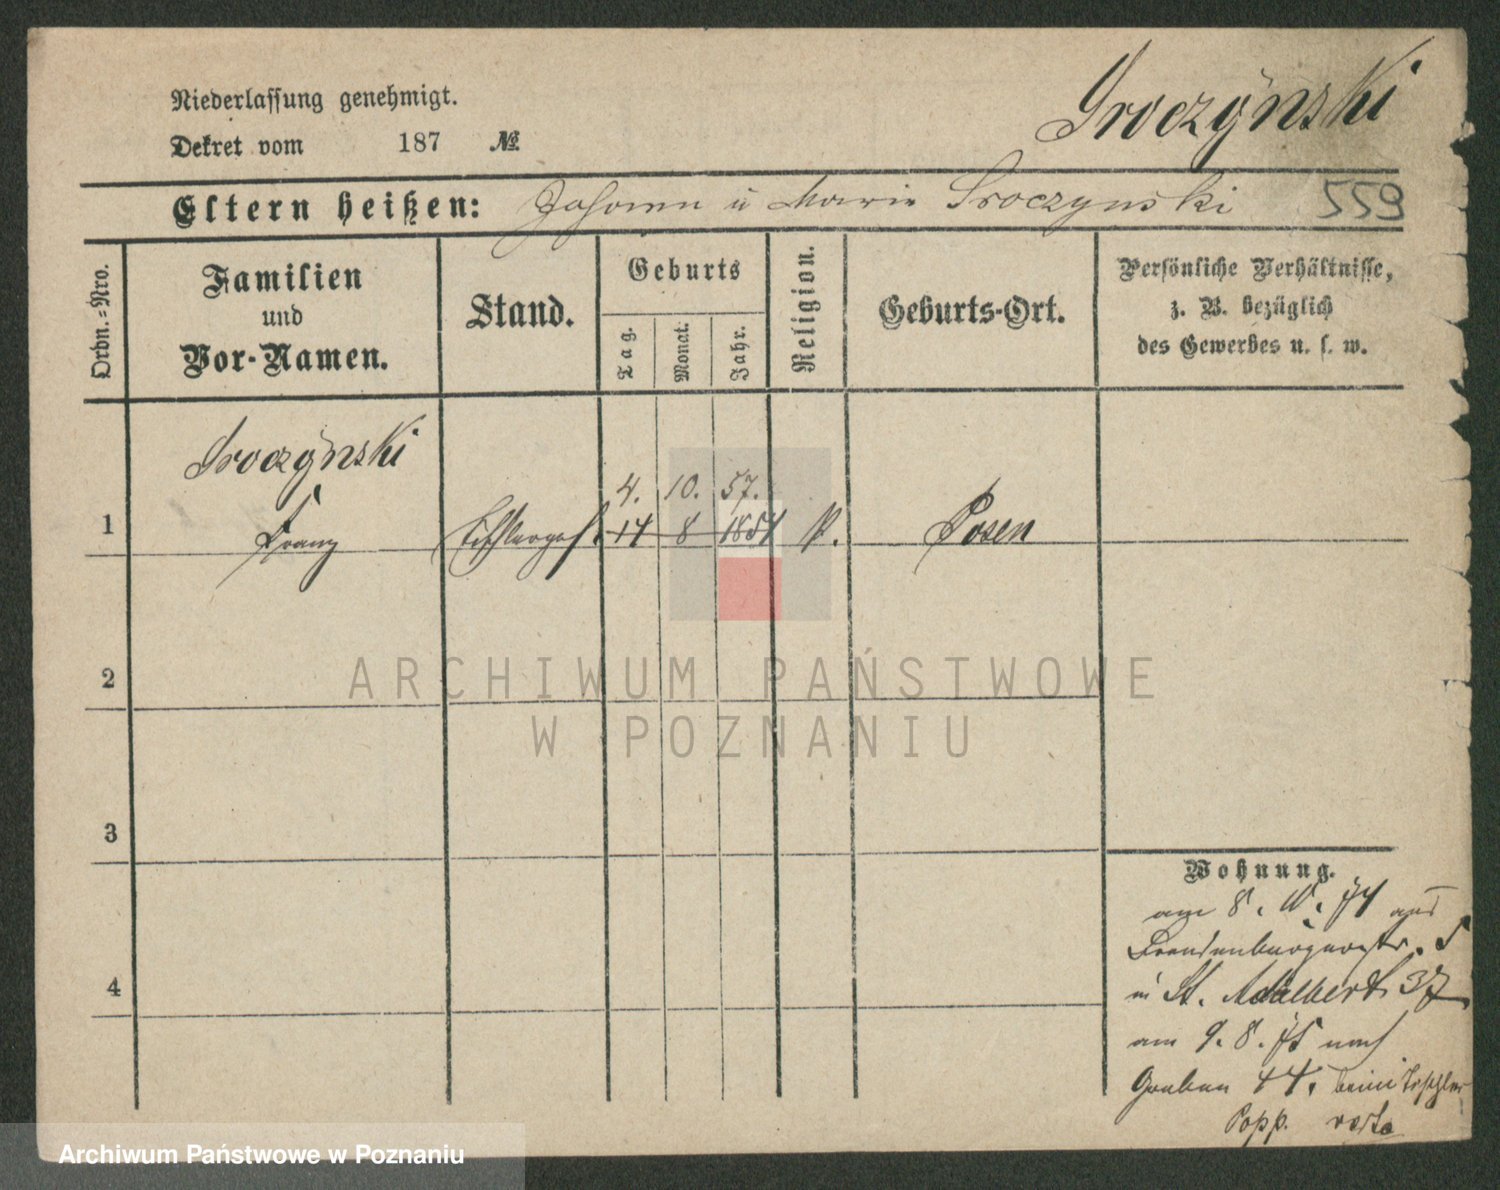 Niederlassung genehmigt.
Dekret vom 187 №
Sroczynski
Eltern heißen: Johann u Marie Sroczynski
559
Ordn.=Nro.
Familien
und
Vor-Namen.
Stand.
Geburts
Tag.
Monat.
Jahr.
Religion.
Geburts-Ort.
Persönliche Verhältnisse,
z. B. bezüglich
des Gewerbes u. s. w.
Sroczynski
4. 10. 57.
1 Franz Tischlerges. 14 8 1854 k. Posen
2
3
4
Wohnung.
am 8. 10. 74 aus
in St. Adalbert 37
am 9. 8. 75 nach
Graben 44. beim Tischler
Popp.
ARCHIWUM PAŃSTWOWE
W POZNANIU
Archiwum Państwowe w Poznaniu